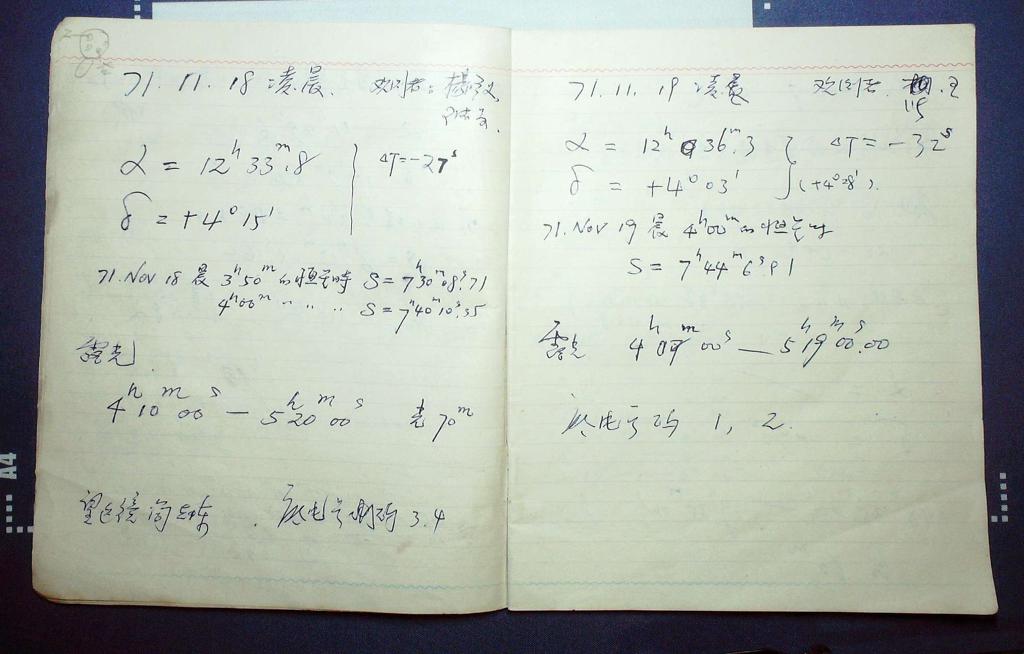 71.11.18 凌晨. 观测者:
α = 12h 33m.8
ΔT = -27s
δ = +4° 15'
71. Nov 18 晨 3h50m 的恒星時 S = 7h30m08s.71
4h00m 〃 〃 〃 S = 7h40m10s.35
露光
4h10m00s — 5h20m00s 老 70m
望远镜筒在东. 底片号码 3.4
71.11.19 凌晨 观测者.
α = 12h 36m.3
ΔT = -32s
δ = +4° 03'
(+4°28').
71. Nov 19 晨 4h00m 的恒星时
S = 7h44m6s.91
露光 4h09m00s — 5h19m00s.00
底片号码 1, 2.
A4